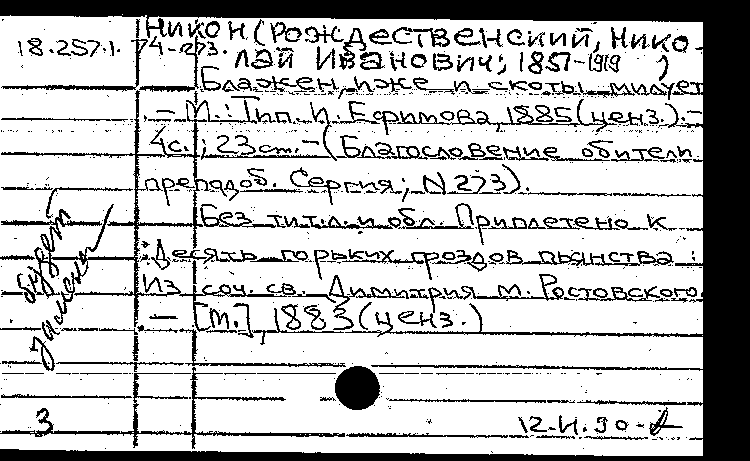 НИКОН (РОЖДЕСТВЕНСКИЙ, НИКО-
18.257.1. 74-273. ЛАЙ ИВАНОВИЧ; 1851-1919)
Блажен, иже и скоты милует
. – М.: Тип. И. Ефимова, 1885 (ценз.). –
4с.; 23 см. – (Благословение обители
преподоб. Сергия; N 273).
Без тит. л. и обл. Приплетено к
: Десять горьких гроздов пьянства :
Из соч. св. Димитрия м. Ростовского.
– [М.], 1883 (ценз.)
будет
3